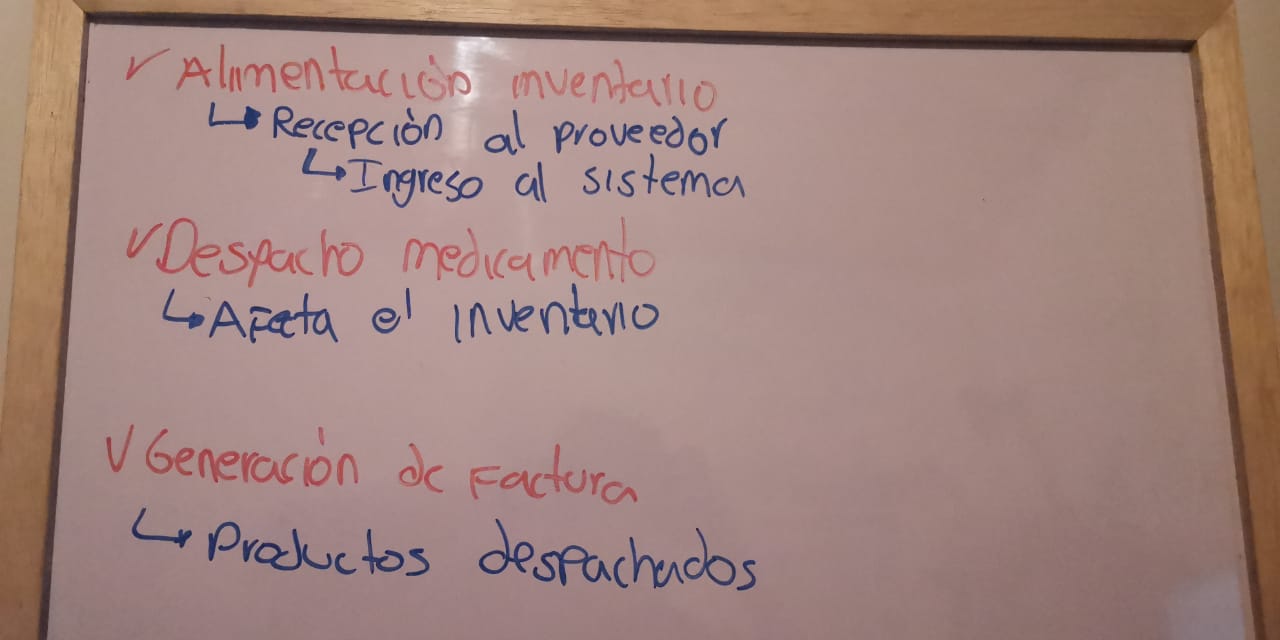 ✓ Alimentación inventario
↳ Recepción al proveedor
↳ Ingreso al sistema
✓ Despacho medicamento
↳ Afecta el inventario
✓ Generación de Factura
↳ Productos despachados